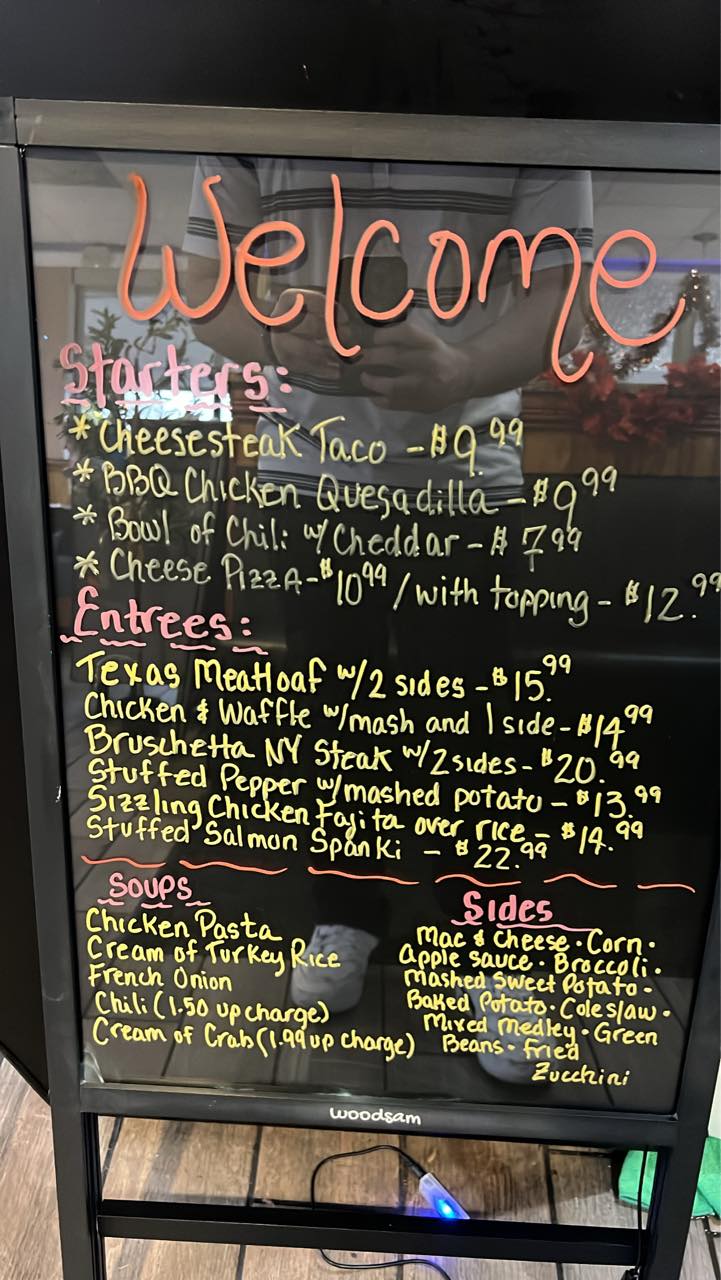 Welcome
Starters:
* Cheesesteak Taco - $9.99
* BBQ Chicken Quesadilla - $9.99
* Bowl of Chili w/ Cheddar - $7.99
* Cheese Pizza - $10.99 / with topping - $12.99
Entrees:
Texas Meatloaf w/2 sides - $15.99
Chicken & Waffle w/mash and 1 side - $14.99
Bruschetta NY Steak w/2 sides - $20.99
Stuffed Pepper w/mashed potato - $13.99
Sizzling Chicken Fajita over rice - $14.99
Stuffed Salmon Spanki - $22.99
Soups
Chicken Pasta
Cream of Turkey Rice
French Onion
Chili (1.50 up charge)
Cream of Crab (1.99 up charge)
Sides
Mac & Cheese • Corn •
Apple sauce • Broccoli •
Mashed Sweet Potato -
Baked Potato • Coleslaw •
Mixed Medley • Green
Beans • Fried
Zucchini
woodsam